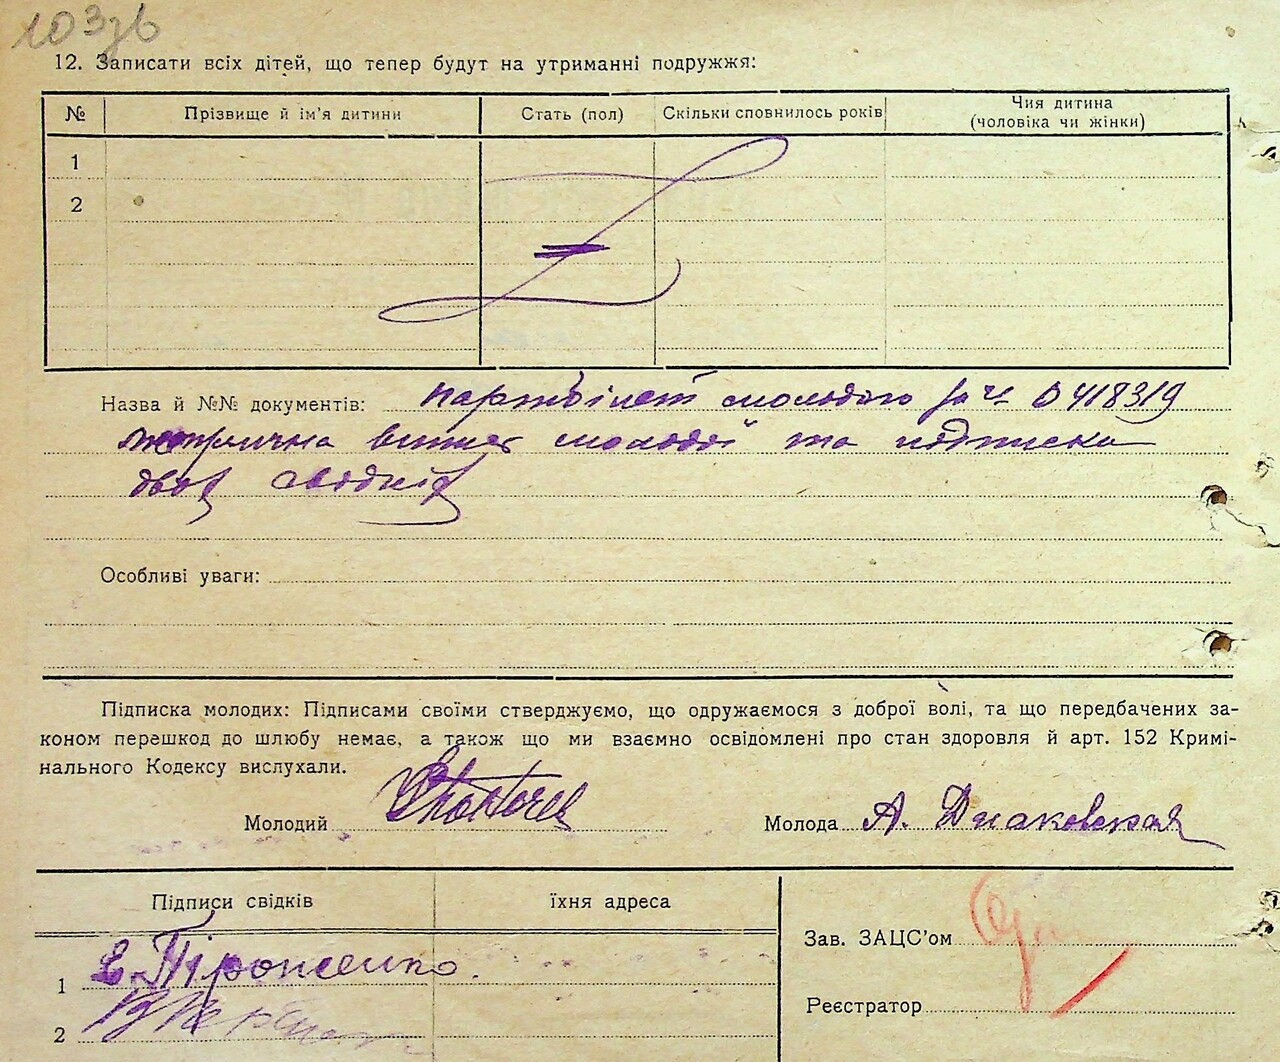 103
12. Записати всіх дітей, що тепер будут на утриманні подружжя:
№ Прізвище й ім'я дитини Стать (пол) Скільки сповнилось років Чия дитина
(чоловіка чи жінки)
1
2
Назва й №№ документів: партбілет молодого за ч. 0418319
метрична витяг молодої та подписка
двох свідків
Особливі уваги:
Підписка молодих: Підписами своїми стверджуємо, що одружаємося з доброї волі, та що передбачених за-
коном перешкод до шлюбу немає, а також що ми взаємно освідомлені про стан здоровля й арт. 152 Кримі-
нального Кодексу вислухали.
Молодий Молода А. Дчаковская
Підписи свідків їхня адреса
Зав. ЗАЦС'ом
1 Є. Піроженко.
Реєстратор
2